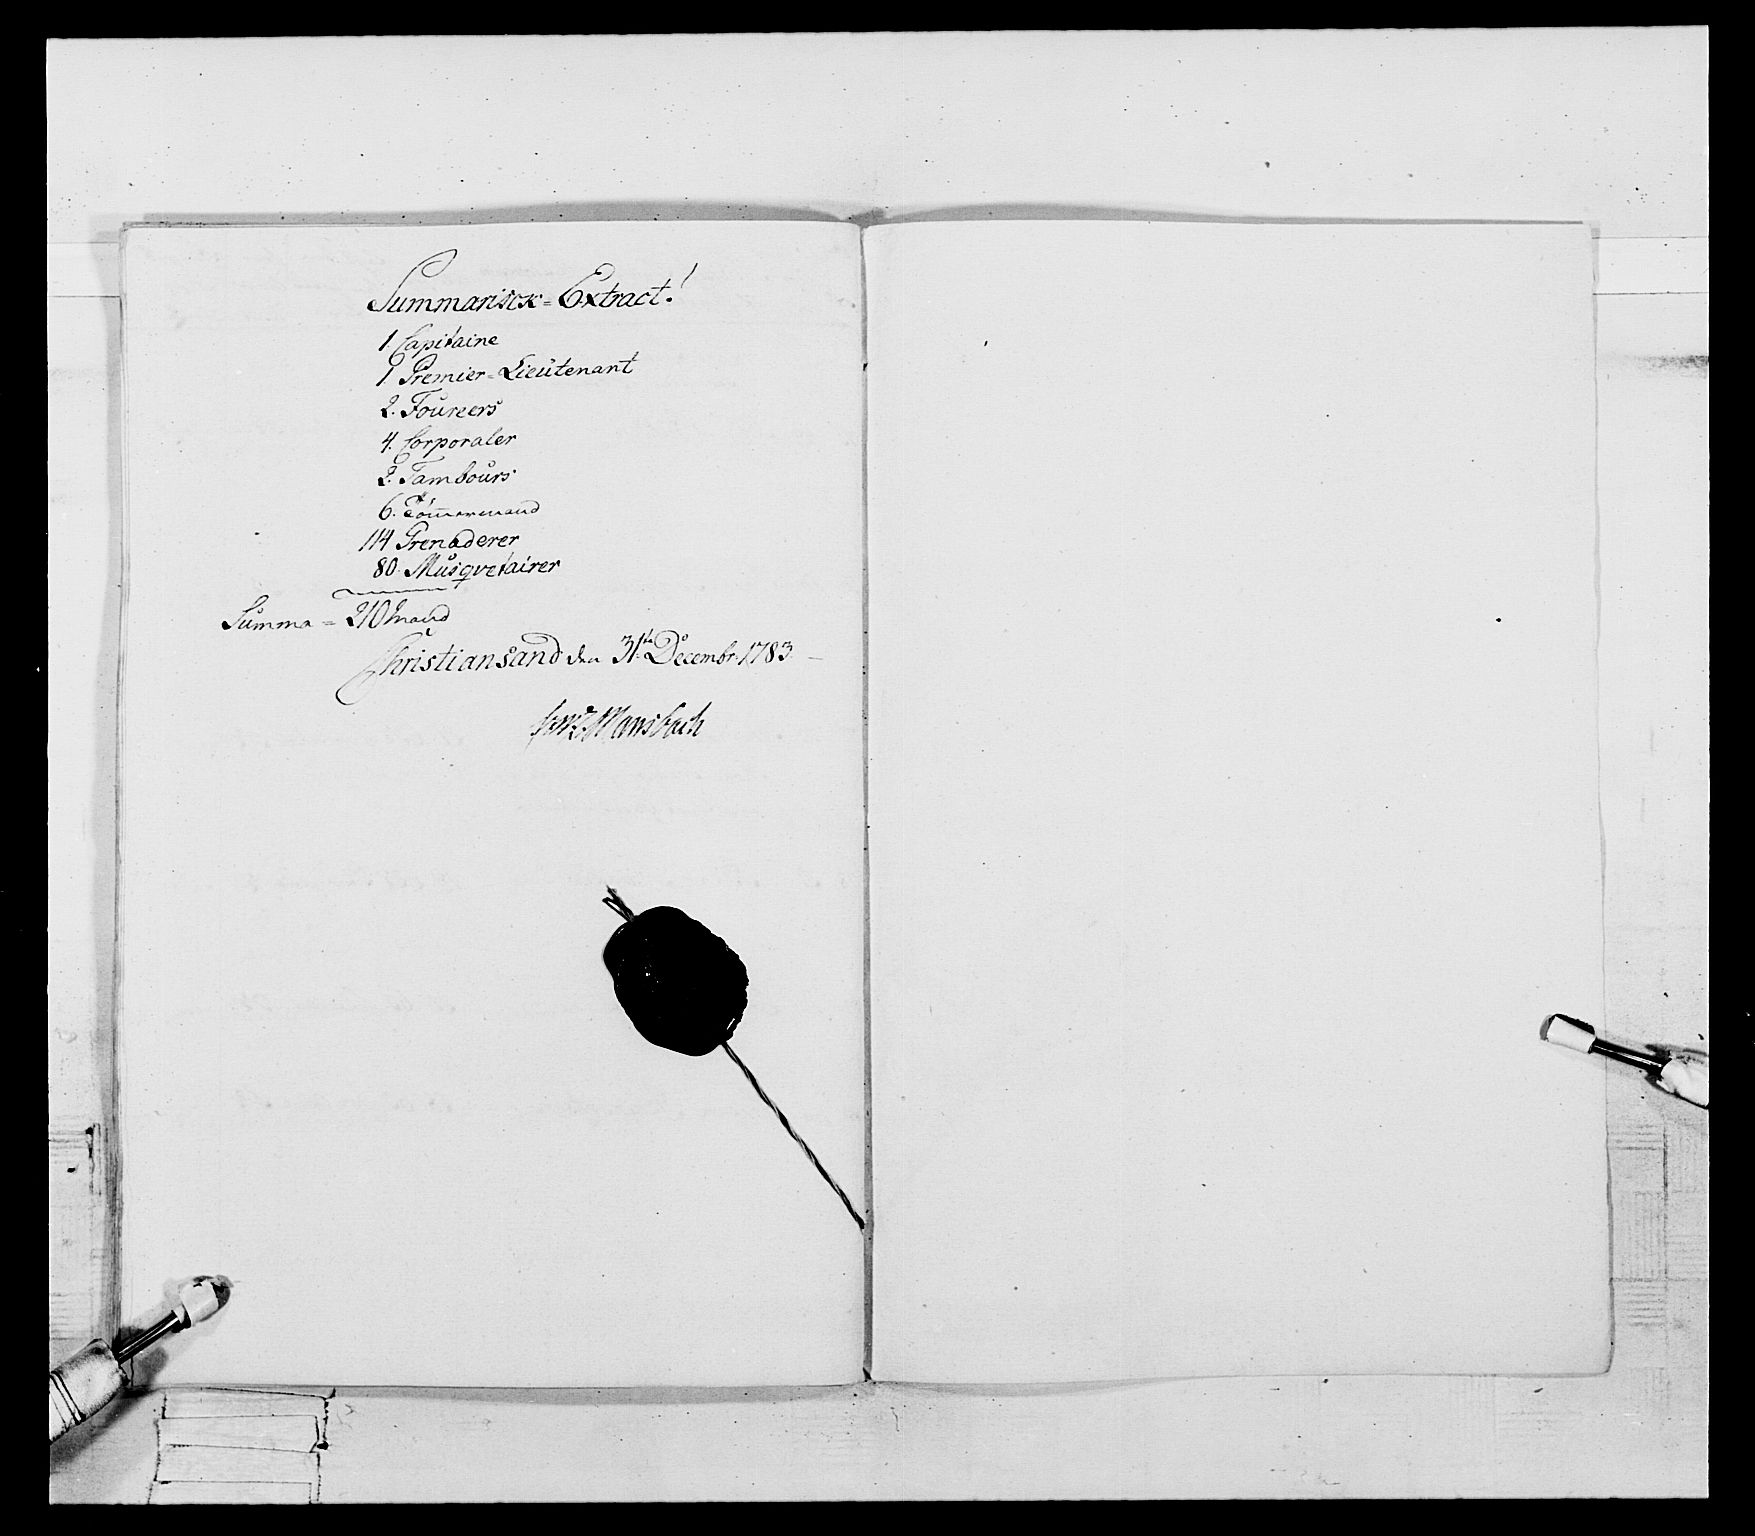 Summarisck=Extract!
1. Capitaine
1 Premier=Lieutenant
2. Foureers
4. Corporaler
2. Tambours
6. Tömmermand
114 Grenaderer
80. Musquetairer
Summa = 210 Mand
Christiansand den 31te Decembr: 1783. –
Mansbach